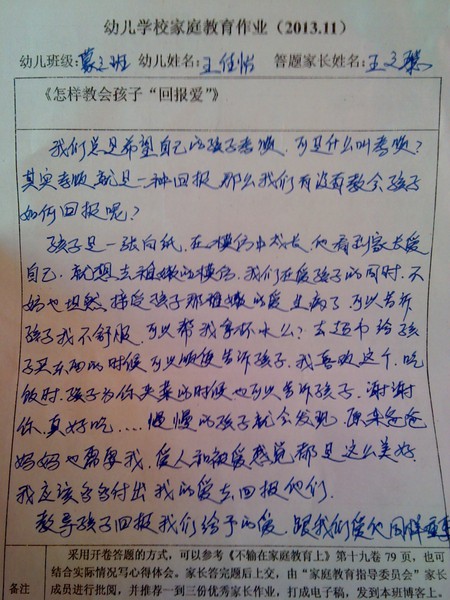 幼儿学校家庭教育作业（2013.11）
幼儿班级:蒙三班 幼儿姓名:王佳怡 答题家长姓名:王文
《怎样教会孩子“回报爱”》
我们总是希望自己的孩子孝顺，可是什么叫孝顺？
其实孝顺就是一种回报 那么我们有没有教会孩子
如何回报呢？
孩子是一张白纸，在模仿中成长，他看到家长爱
自己，就想去稚嫩的模仿，我们在爱孩子的同时，不
妨也坦然接受孩子那稚嫩的爱 生病了，可以告诉
孩子我不舒服，可以帮我拿杯水么？去超市给孩
子买东西的时候可以顺便告诉孩子，我喜欢这个，吃
饭时，孩子为你夹菜的时候也可以告诉孩子，谢谢
你，真好吃……慢慢的孩子就会发现 原来爸爸
妈妈也需要我，爱人和被爱感觉都是这么美好，
我应该多多付出我的爱去回报他们.
教导孩子回报我们给予的爱，跟我们爱他同样重要
备注
采用开卷答题的方式，可以参考《不输在家庭教育上》第十九卷 79 页，也可
结合实际情况写心得体会。家长答完题后上交，由“家庭教育指导委员会”家长
成员进行批阅，并推荐一到三份优秀家长作业，打成电子稿，发到本班博客上。